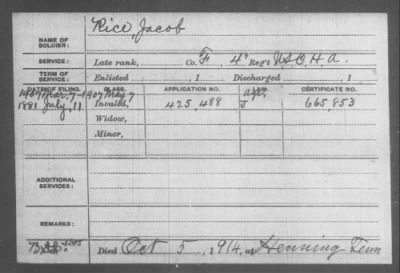 Rice, Jacob
NAME OF SOLDIER:
SERVICE: Late rank, Co. F, 4" Reg't U.S.C.H.A.
TERM OF SERVICE: Enlisted , 1 Discharged , 1
DATE OF FILING. CLASS. APPLICATION NO. LAW. CERTIFICATE NO.
1907 Mar. 7-1907 May 7 age
1881 July, 11 Invalid, 425,488 J 665,853
Widow,
Minor,
ADDITIONAL SERVICES:
REMARKS:
Died Oct 5, 1914, at Henning Tenn